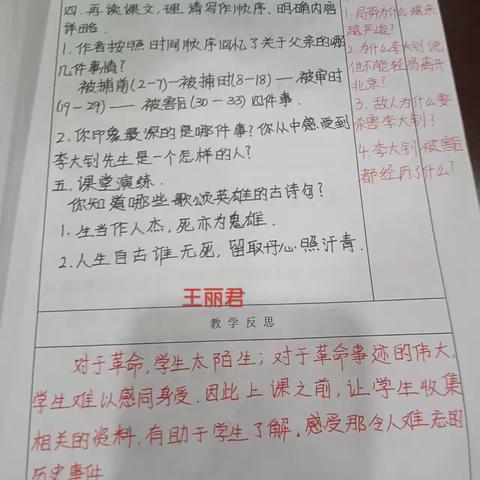 四.再读课文,理清写作顺序.明确内容
详略.
1.作者按照时间顺序回忆了关于父亲的哪
几件事情?
被捕前(2-7)—被捕时(8-18)—被审时
(19-29)—被害后(30-33)四件事.
2.你印象最深的是哪件事?你从中感受到
李大钊先生是一个怎样的人?
五.课堂演练.
你知道哪些歌颂英雄的古诗句?
1.生当作人杰,死亦为鬼雄.
2.人生自古谁无死,留取丹心照汗青.
1.局势为什么越来
越严峻?
2.为什么李大钊说
他不能轻易离开
北京?
3.敌人为什么要
杀害李大钊?
4.李大钊被害
都经历了什么?
王丽君
教学反思
对于革命,学生太陌生;对于革命事迹的伟大,
学生难以感同身受.因此上课之前,让学生收集
相关的资料,有助于学生了解.感受那令人难忘的
历史事件